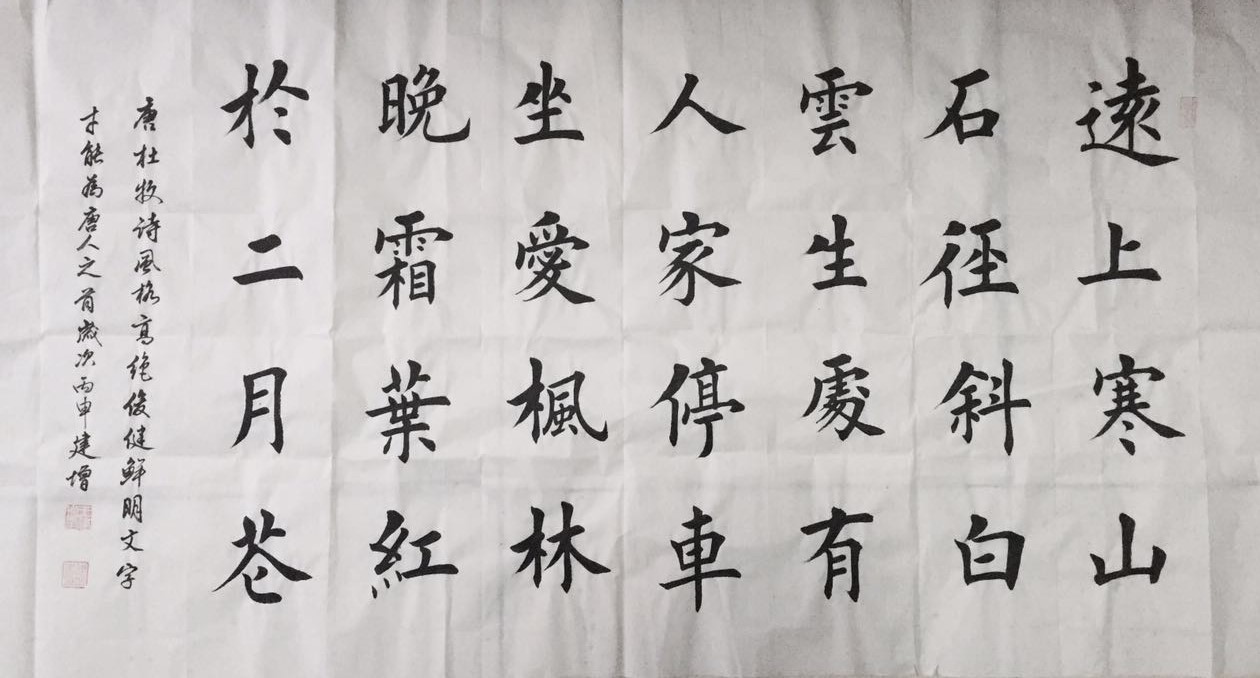 遠上寒山
石徑斜白
雲生處有
人家停車
坐愛楓林
晚霜葉紅
於二月花
唐杜牧诗風格高绝俊健鮮明文字
才能為唐人之首歲次丙申建增